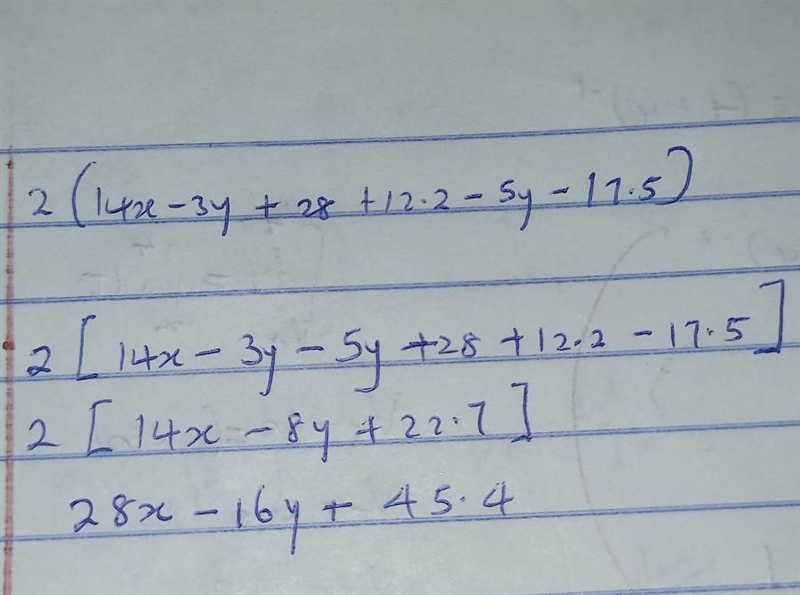 2 (14x - 3y + 28 + 12.2 - 5y - 17.5)
2 [14x - 3y - 5y + 28 + 12.2 - 17.5]
2 [14x - 8y + 22.7]
28x - 16y + 45.4